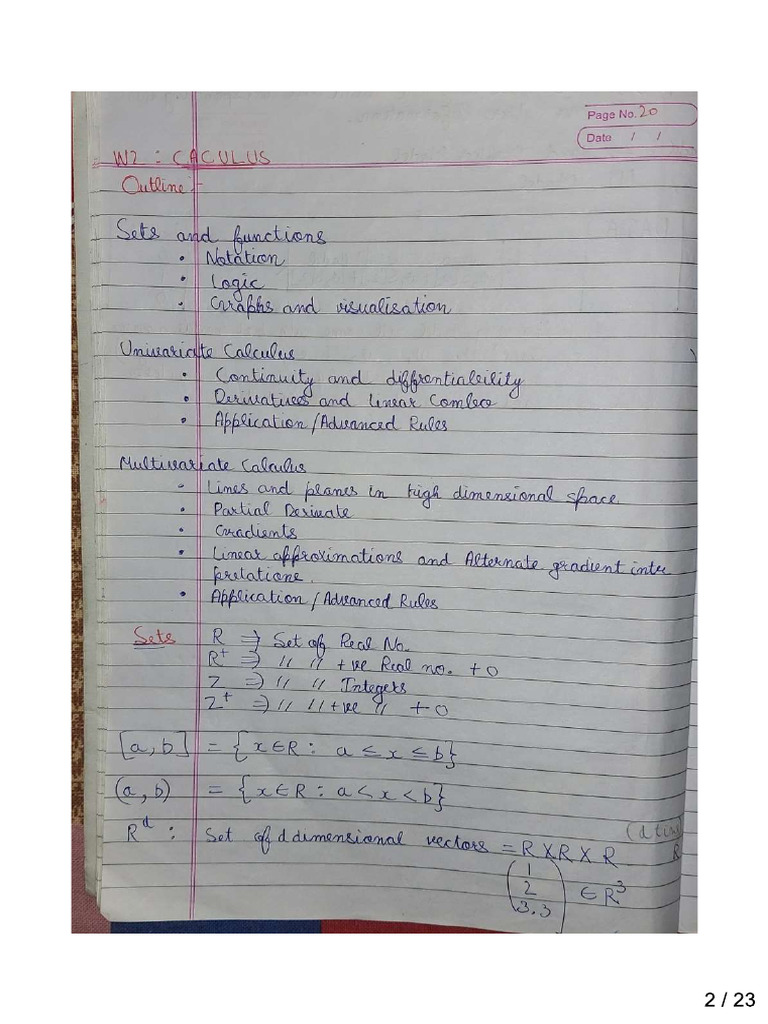 Page No. 20
Date / /
W2 : CACULUS
Outline :-
Sets and functions
• Notation
• Logic
• Graphs and visualisation
Univariate Calculus
• Continuity and diffrentiability
• Derivatives and linear
• Application / Advanced Rules
Multivariate Calculus
- Lines and planes in high dimensional space
• Partial Derivate
• Gradients
• Linear approximations and Alternate gradient inter
pretations.
• Application / Advanced Rules
Sets R ⇒ Set of Real No.
R⁺ ⇒ // // +ve Real no. + 0
Z ⇒ // // Integers
Z⁺ ⇒ // // +ve // + 0
[a, b] = {x∈R : a ≤ x ≤ b}
(a, b) = {x∈R : a < x < b}
Rᵈ : Set of d dimensional vectors = R X R X R
(1 2 3.3) ∈ R³
2 / 23